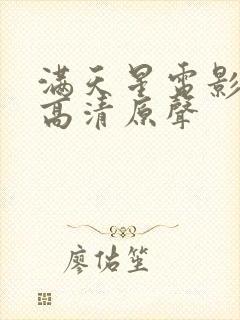 滿天星電影
高清原聲
廖佑笙